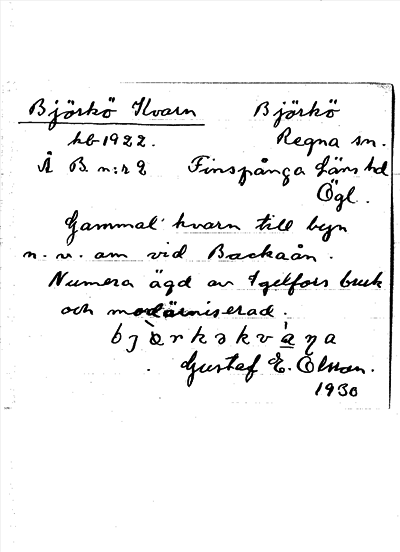 Björkö Kvarn Björkö
hb-1922. Regna sn.
Å B. n:r 2 Finspånga Läns hd
Ögl.
Gammal kvarn till byn
n. v. om vid Backaån.
Numera ägd av Igelfors bruk
och modärniserad.
Gustaf E. Olsson.
1930